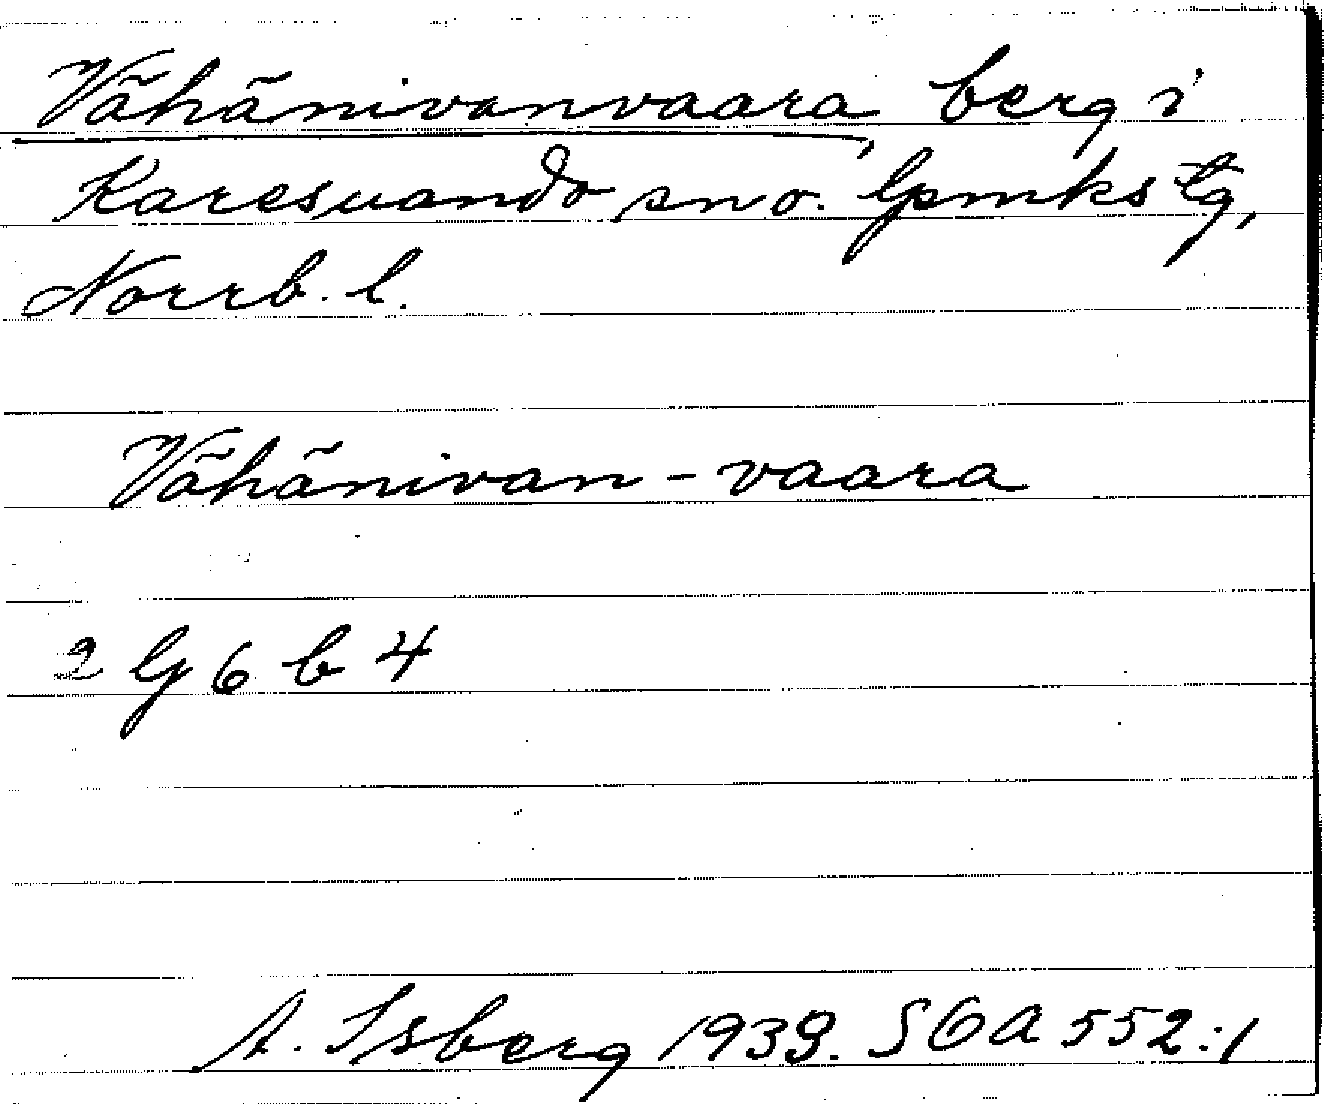 Vähänivanvaara, berg i
Karesuando sn o. lpmks tg,
Norrb. l.
Vähänivan - vaara
2 G 6 b 4
A. Isberg 1939. SOA 552:1